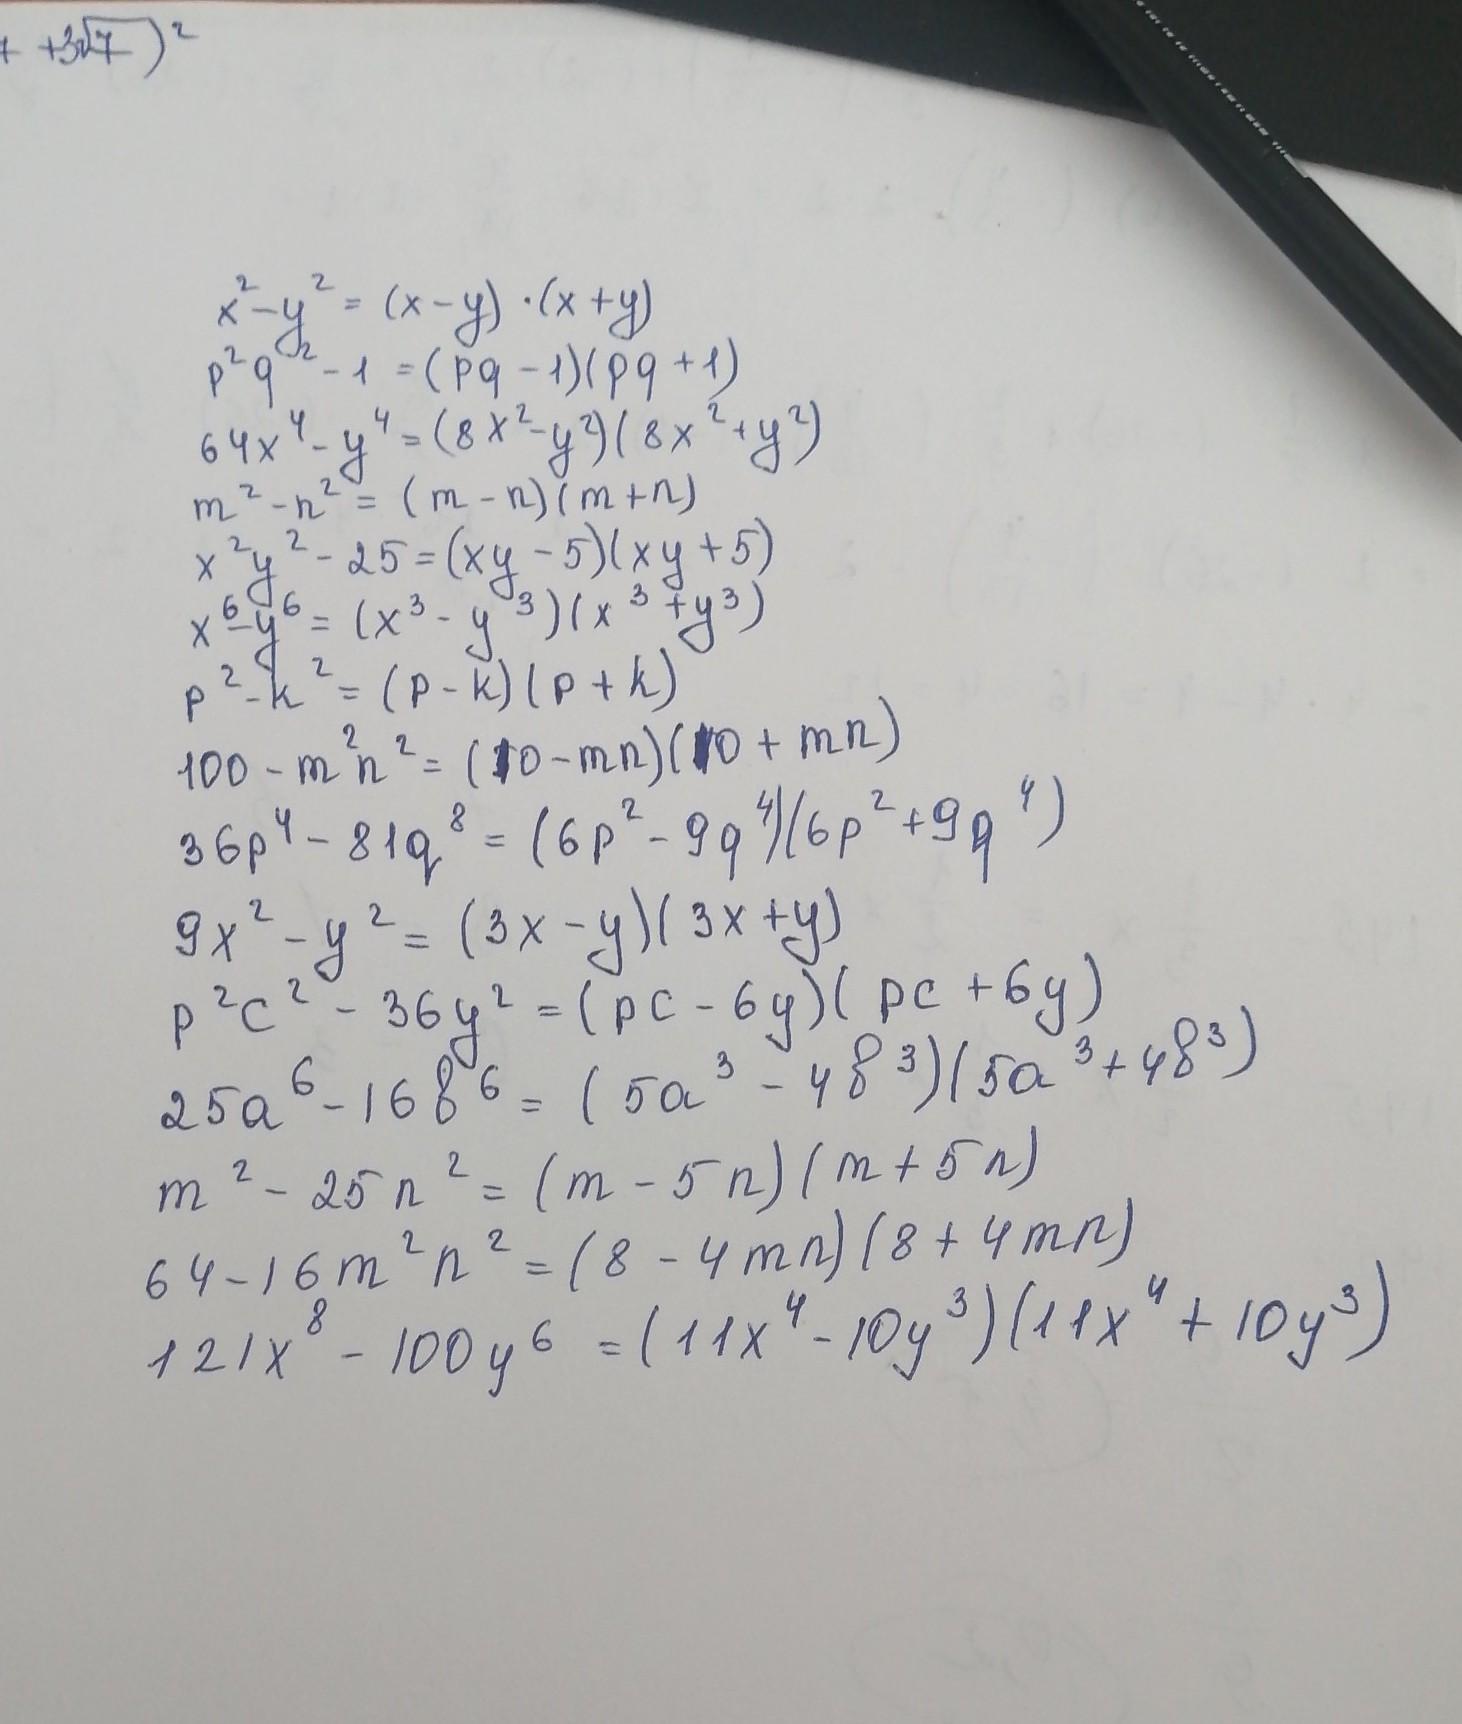 +3√7)²
x² - y² = (x - y) · (x + y)
p²q² - 1 = (pq - 1)(pq + 1)
64x⁴ - y⁴ = (8x² - y²)(8x² + y²)
m² - n² = (m - n)(m + n)
x²y² - 25 = (xy - 5)(xy + 5)
x⁶ - y⁶ = (x³ - y³)(x³ + y³)
p² - k² = (p - k)(p + k)
100 - m²n² = (10 - mn)(10 + mn)
36p⁴ - 81q⁸ = (6p² - 9q⁴)(6p² + 9q⁴)
9x² - y² = (3x - y)(3x + y)
p²c² - 36y² = (pc - 6y)(pc + 6y)
25a⁶ - 16b⁶ = (5a³ - 4b³)(5a³ + 4b³)
m² - 25n² = (m - 5n)(m + 5n)
64 - 16m²n² = (8 - 4mn)(8 + 4mn)
121x⁸ - 100y⁶ = (11x⁴ - 10y³)(11x⁴ + 10y³)